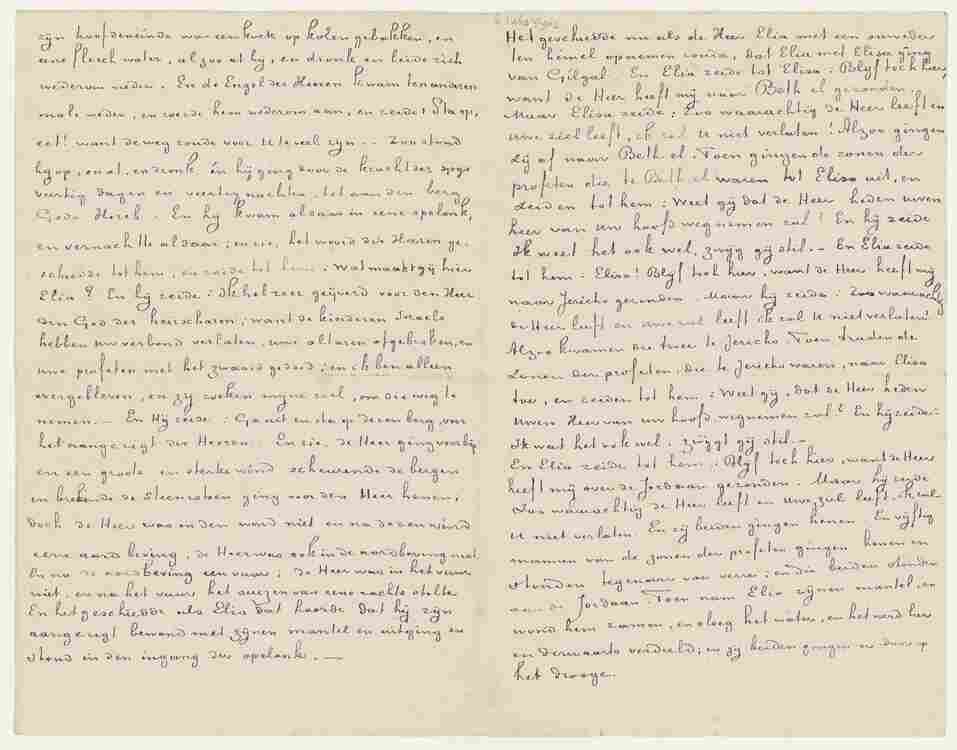 zijn hoofdeneinde was een koek op kolen gebakken, en
eene flesch water, alzoo at hij, en dronk en leide zich
wederom neder. En de Engel des Heeren kwam ten anderen
male weder, en roerde hem wederom aan, en zeide: Sta op,
eet! want de weg zoude voor u te veel zijn. - Zoo stond
hij op, en at, en dronk. En hij ging door de kracht der spijs
veertig dagen en veertig nachten, tot aan den berg
Gods Horeb. En hij kwam aldaar in eene spelonk,
en vernachtte aldaar; en zie, het woord des Heeren ge-
schiedde tot hem, en zeide tot hem: Wat maakt gij hier
Elia? En hij zeide: Ik heb zeer geijverd voor den Heer
den God der heerscharen; want de kinderen Israels
hebben uw verbond verlaten, uwe altaren afgebroken, en
uwe profeten met het zwaard gedood; en ik ben alleen
overgebleven, en zij zoeken mijne ziel, om die weg te
nemen. - En Hij zeide: Ga uit en sta op dezen berg, voor
het aangezigt des Heeren. En zie, de Heer ging voorbij
en een groote en sterke wind scheurende de bergen
en brekende de steenrotsen ging voor den Heer henen,
doch de Heer was in den wind niet en na dezen wind
eene aardbeving, de Heer was ook in de aardbeving niet
En na de aardbeving een vuur; de Heer was in het vuur
niet, en na het vuur het suizen van eene zachte stilte
En het geschiedde als Elia dat hoorde dat hij zijn
aangezigt bewond met zijnen mantel en uitging en
stond in den ingang der spelonk. —
Het geschiedde nu als de Heer Elia met een onweder
ten hemel opnemen zoude, dat Elia met Elisa ging
van Gilgal. En Elia zeide tot Elisa: Blijf toch hier,
want de Heer heeft mij naar Beth el gezonden.
Maar Elisa zeide: Zoo waarachtig de Heer leeft en
uwe ziel leeft, ik zal u niet verlaten! Alzoo gingen
zij af naar Beth el. Toen gingen de zonen der
profeten die te Beth el waren tot Elisa uit, en
zeiden tot hem: Weet gij dat de Heer heden uwen
heer van uw hoofd wegnemen zal? En hij zeide
Ik weet het ook wel, zwijg gij stil. - En Elia zeide
tot hem. Elisa! Blijf toch hier, want de Heer heeft mij
naar Jericho gezonden. Maar hij zeide: Zoo waarachtig
de Heer leeft en uwe ziel leeft ik zal u niet verlaten!
Alzoo kwamen die twee te Jericho. Toen traden de
zonen der profeten, die te Jericho waren, naar Elisa
toe, en zeiden tot hem: Weet gij, dat de Heer heden
uwen Heer van uw hoofd wegnemen zal? En hij zeide:
Ik weet het ook wel. zwijgt gij stil. -
En Elia zeide tot hem: Blijf toch hier, want de Heer
heeft mij over de Jordaan gezonden. Maar hij zeide
Zoo waarachtig de Heer leeft en uwe ziel leeft, ik zal
u niet verlaten. En zij beiden gingen henen. En vijftig
mannen van de zonen der profeten gingen henen en
stonden tegenover van verre; en die beiden stonden
aan de Jordaan. Toen nam Elia zijnen mantel, en
wond hem zamen, en sloeg het water, en het werd her
en derwaarts verdeeld; en zij beiden gingen er door op
het drooge.